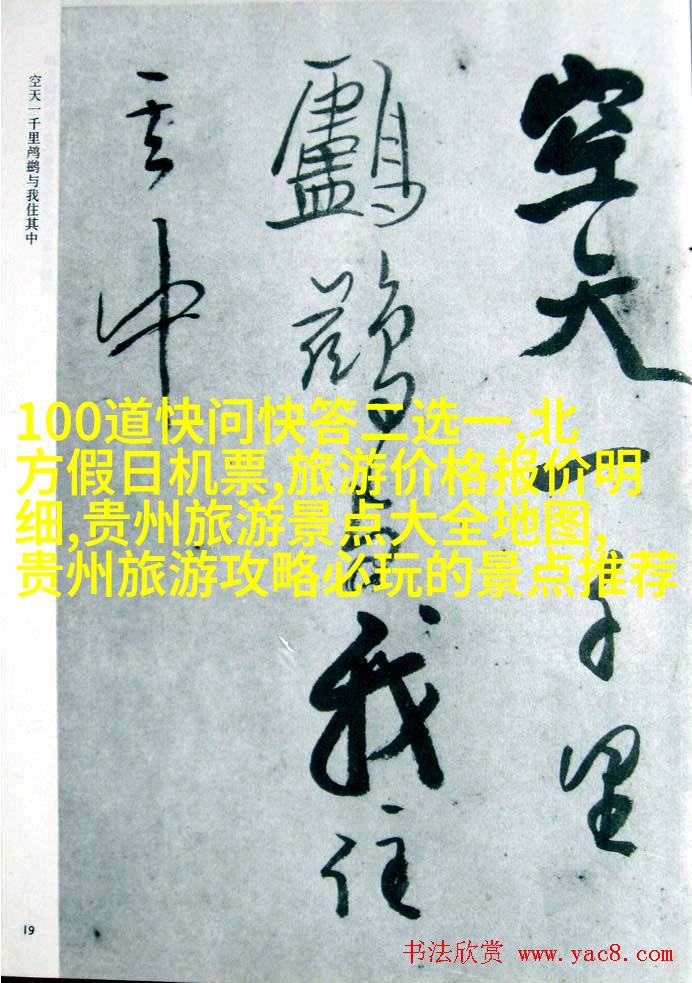 空天一千里鸬鹚与我住其中
空天一千里
鸕鶿與我住
其中
100道快问快答二选一,北
方假日机票,旅游价格报价明
细,贵州旅游景点大全地图,
贵州旅游攻略必玩的景点推荐
19
书法欣赏 www.yac8.com